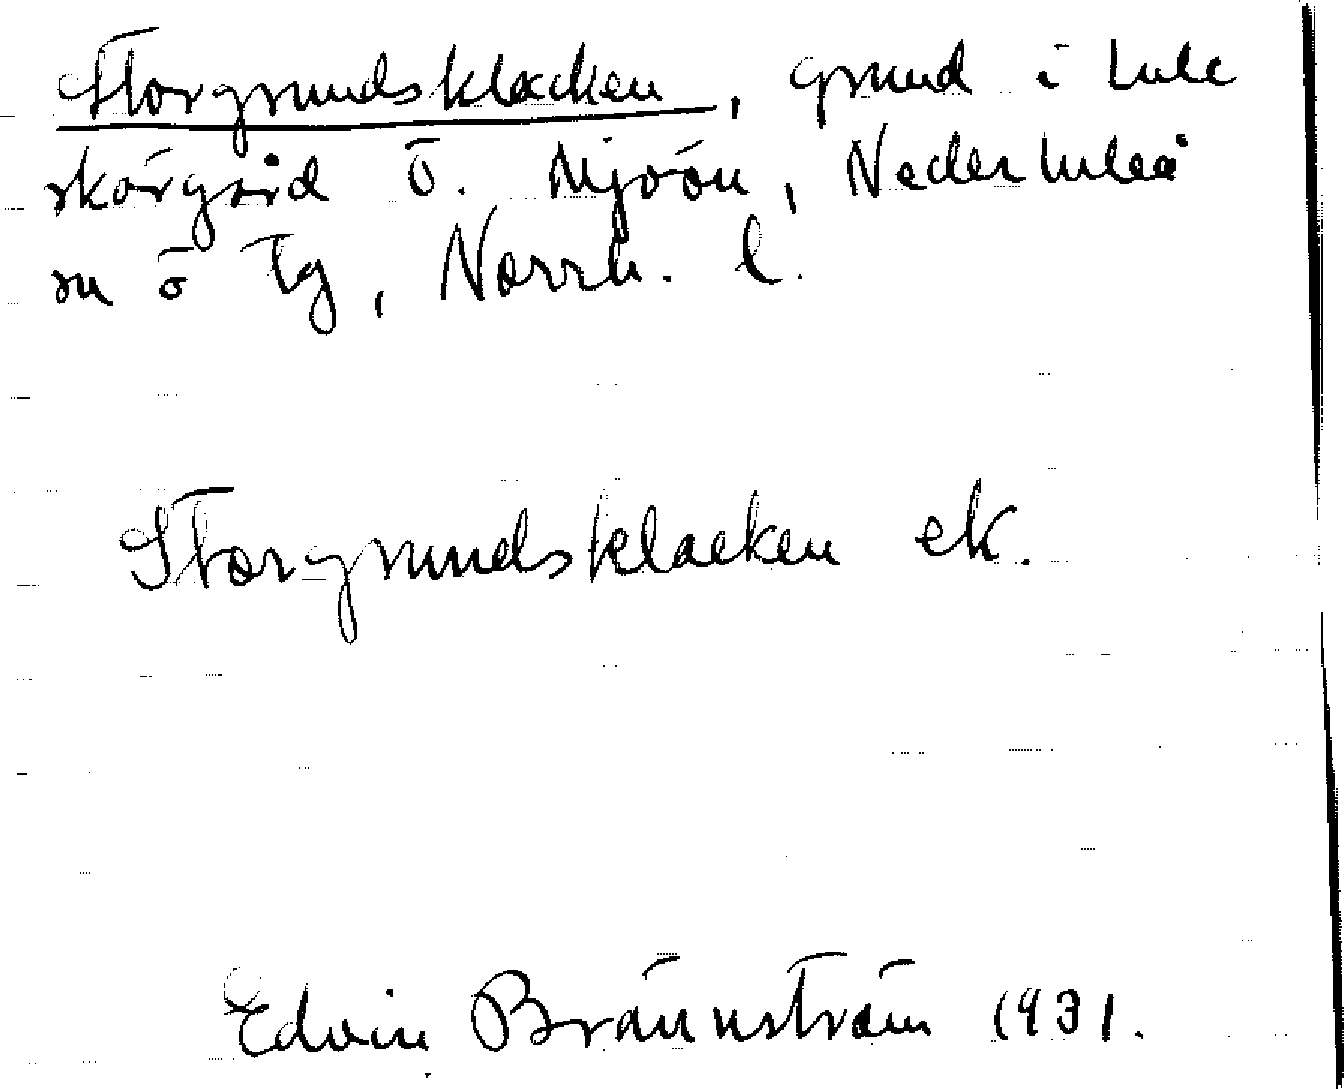 Storgrundsklacken, grund i Lule
skärgård ö. Mjöön, Nederluleå
sn ö Tg, Norrb. l.
Storgrundsklacken ek.
Edvin Brännström 1931.